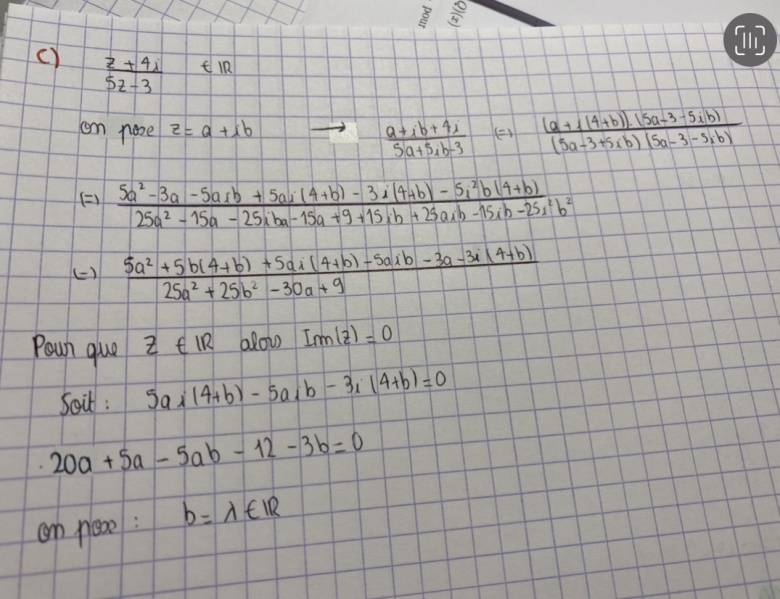 pour
Q)(z)
c) (z + 4i)/(5z - 3) ∈ IR
on pose z = a + ib → (a + ib + 4i)/(5a + 5ib - 3) (=) ((a + i(4+b)).(5a - 3 - 5ib))/((5a - 3 + 5ib)(5a - 3 - 5ib))
(=) (5a² - 3a - 5aib + 5ai(4+b) - 3i(4+b) - 5i²b(4+b))/(25a² - 15a - 25iba - 15a + 9 + 15ib + 25aib - 15ib - 25i²b²)
(=) (5a² + 5b(4+b) + 5ai(4+b) - 5aib - 3a - 3i(4+b))/(25a² + 25b² - 30a + 9)
Pour que Z ∈ IR alors Im(z) = 0
Soit : 5ai(4+b) - 5aib - 3i(4+b) = 0
20a + 5a - 5ab - 12 - 3b = 0
on pose : b = λ ∈ IR